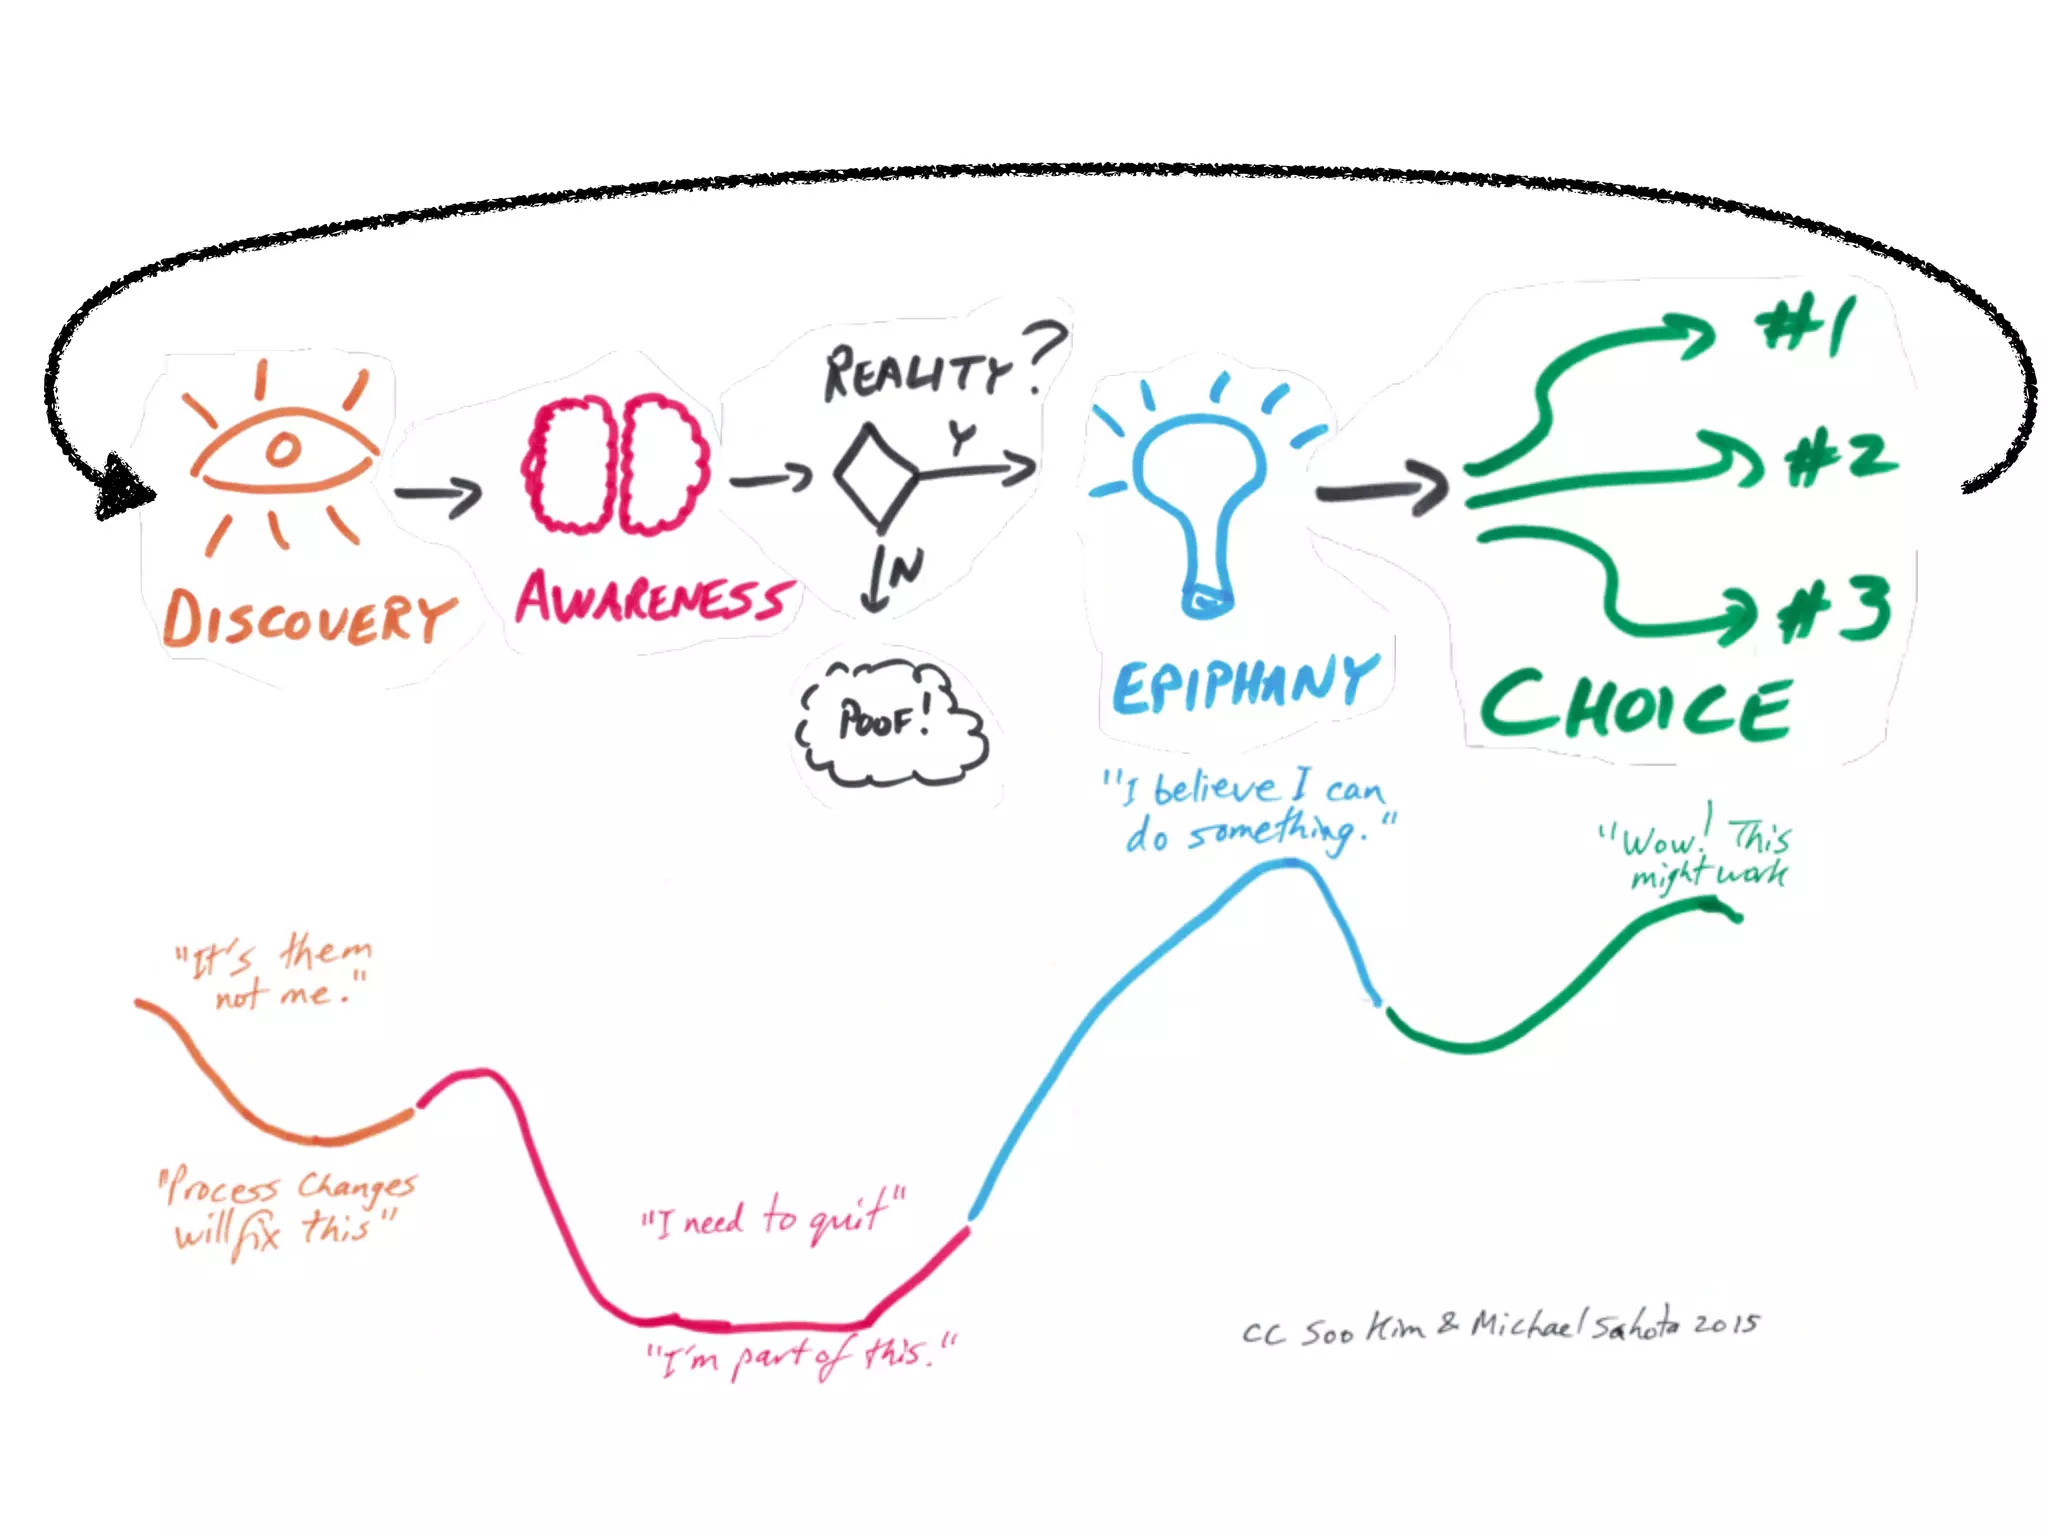 REALITY?
Y
N
DISCOVERY
AWARENESS
POOF!
EPIPHANY
#1
#2
#3
CHOICE
"It's them
not me."
"Process Changes
will fix this"
"I need to quit"
"I'm part of this."
"I believe I can
do something."
"Wow! This
might work
CC Soo Kim & Michael Sahota 2015